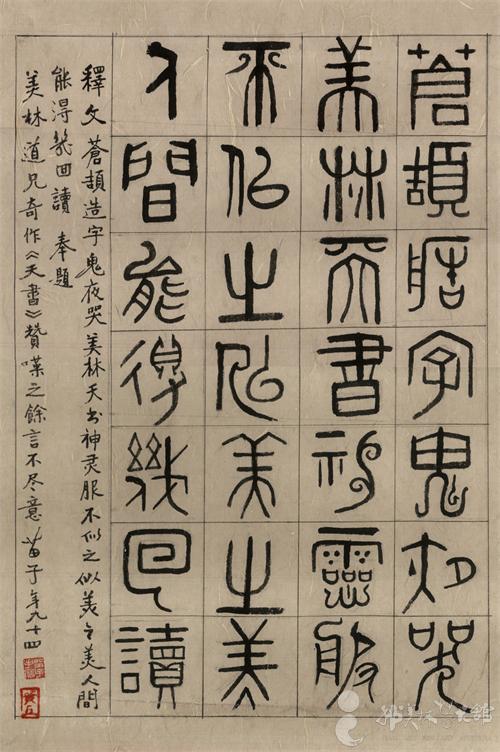 蒼頡造字鬼夜哭
美林天書神靈服
不佀之佀美之美
人間能得幾回讀
釋文 蒼頡造字鬼夜哭美林天书神灵服不似之似美之美人間
能得幾回讀 奉題
美林道兄奇作《天書》贊嘆之餘言不尽意 苗子年九十四